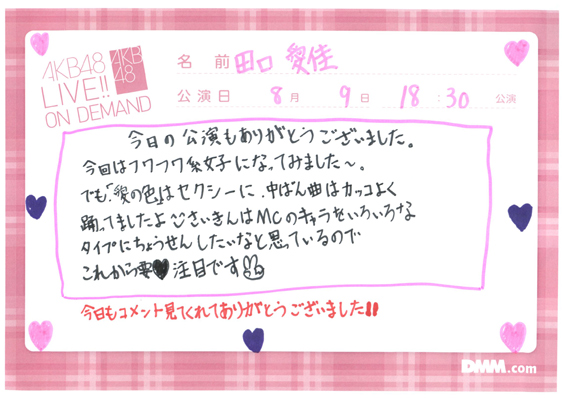 AKB48
LIVE!!
ON DEMAND
AKB
48
名 前 田口 愛佳
公演日 8月 9日 18:30 公演
今日の公演もありがとうございました。
今回はフワフワ系女子になってみました〜。
でも、「愛の色」はセクシーに、中ばん曲はカッコよく
踊ってましたよ さいきんはMCのキャラをいろいろな
タイプにちょうせんしたいなと思っているので
これから要♥注目です
今日もコメント見てくれてありがとうございました!!
DMM.com